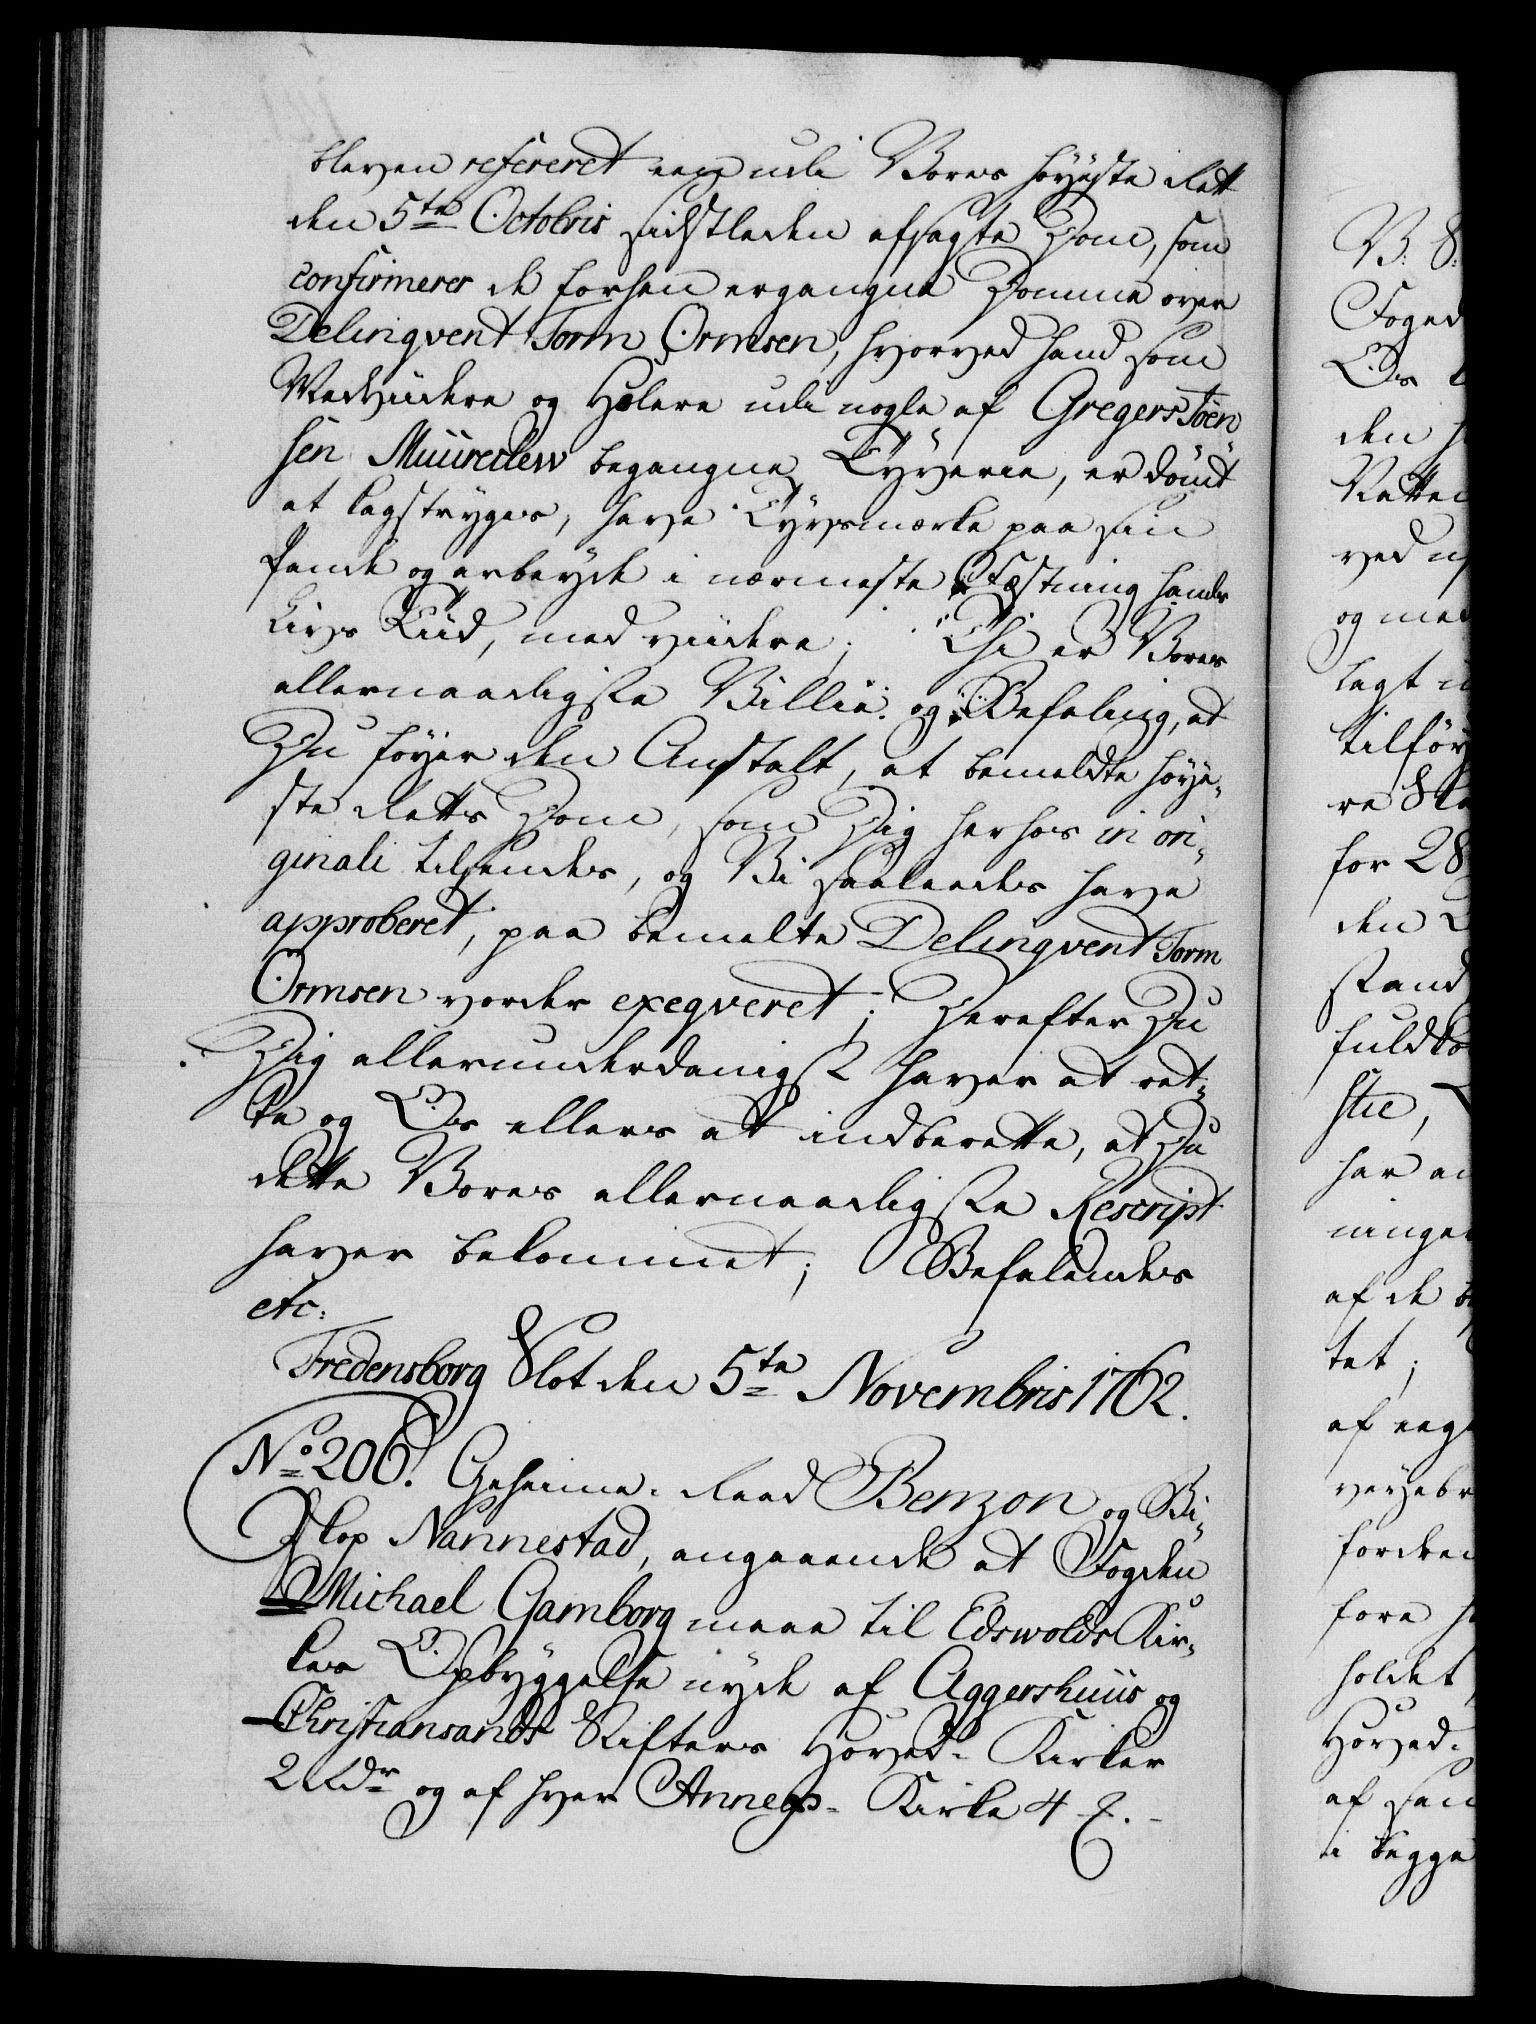 bleven refereret een udi Vores høyeste Rett
den 5te Octobris sidstleden afsagte Dom, som
confirmerer de forhen ergangne Domme over
Delinqvent Torm Ormsen, hvorved hand som
Medvidere og Hælere udi nogle af Gregers Joen
sen Muurecleiv begangne Tyverie, er dömt
at kagstryges, have Tyvsmærke paa sin
Pande og arbeyde i nærmeste Fæstning hands
Livs Tiid, med viidere; Thi er Vores
allernaadigste Villie og Befaling, at
Du føyer den Anstalt, at bemeldte høye-
ste Retts Dom, som Dig herhos in ori-
ginali tilsendes, og Vi saaledes have
approberet, paa bemelte Delinqvent Torm
Ormsen vorder exeqveret; Derefter Du
Dig allerunderdanigst haver at ret-
te og Os ellers at indberette, at Du
dette Vores allernaadigste Rescript
haver bekommet; Befalendes
etc:
Fredensborg Slot den 5te Novembris 1762.
No 206. Geheime-Raad Benzon og Bi-
skop Nannestad, angaaende at Fogden
Michael Gamborg maae til Edswolds Kir-
kes Opbyggelse nyde af Aggershuus og
Christiansands Stifters Hoved-Kirker
2 Rdr og af hver Annexs-Kirke 4 ß.
V: S:
Foged
Os
den
Rette
ved
og med
lagt
tilför
re
for 28
den
stand
fuldko
stie,
har
ninge
af de
tet;
af
fordre
fore
holdet
Hoved-
af
i begge